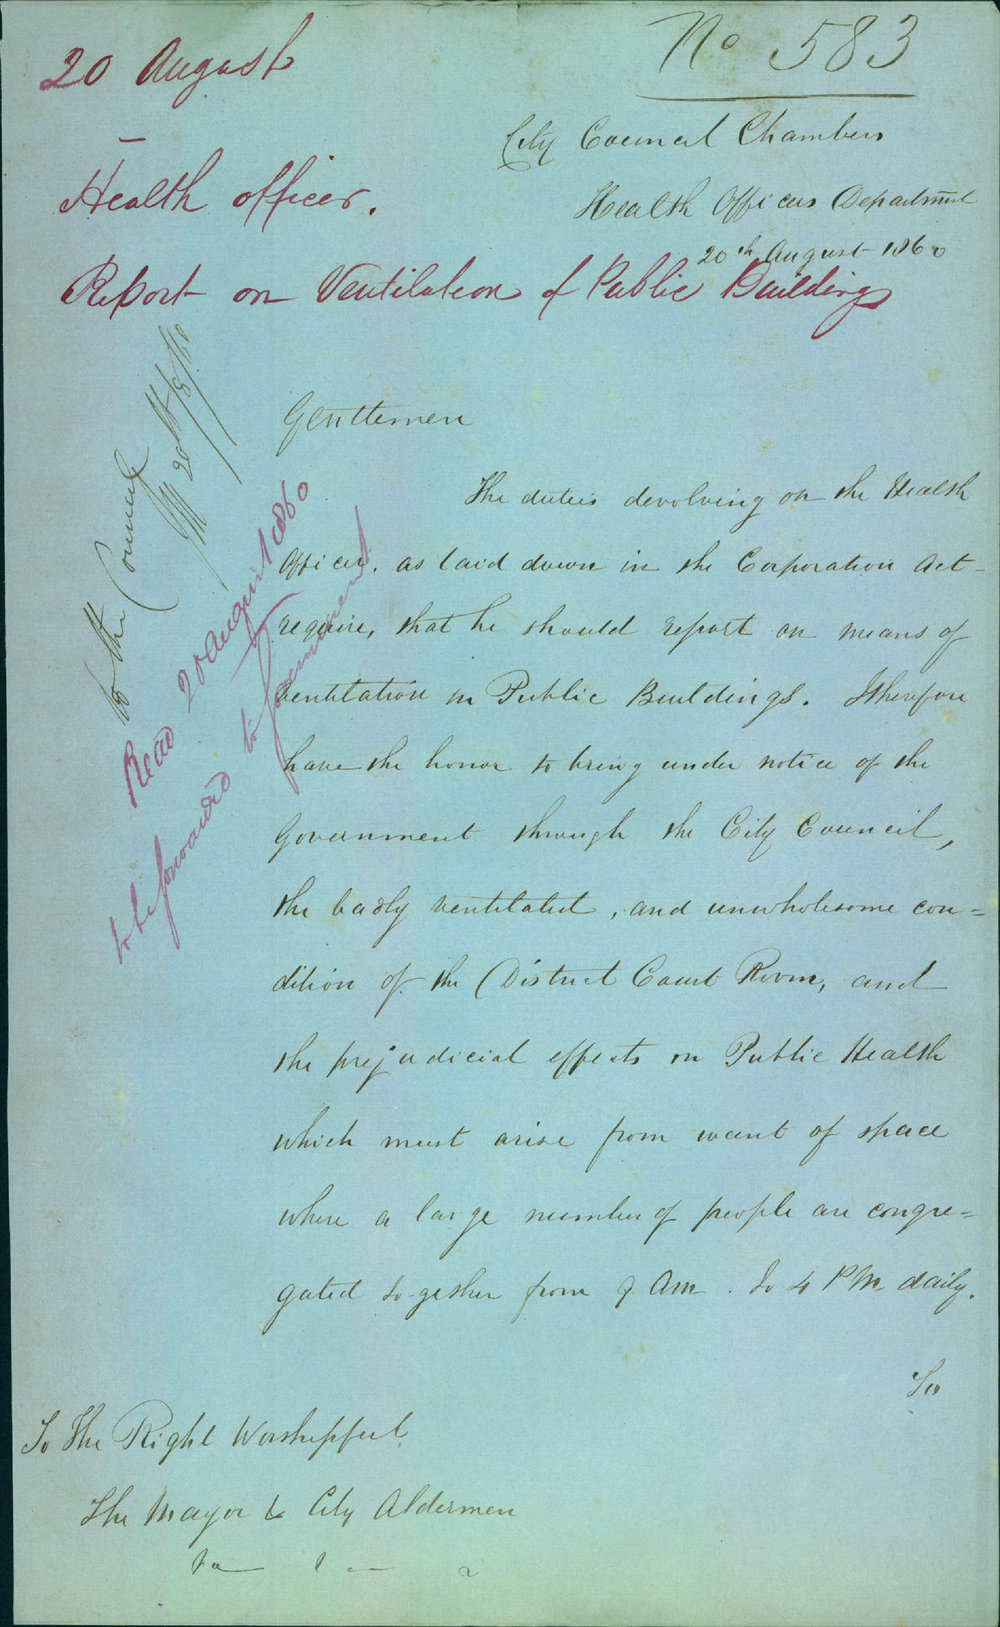 No 583
20 August
City Council Chambers
Health officer.
Health Officers Departmnt
20th August 1860
Report on Ventilation of Public Buildings
Gentlemen
The duties devolving on the Health
Officer, as laid down in the Corporation Act
require, that he should report on means of
ventilation in Public Buildings. I therefore
have the honor to bring under notice of the
Government through the City Council,
the badly ventilated, and unwholesome con=
dition of the District Court Room, and
the prejudicial effects on Public Health
which must arise from want of space
where a large number of people are congre=
gated to-gether from 9 Am. to 4 PM daily.
To the Council
20th/8/60
Read 20 August 1860
to be forwarded to Government
To The Right Worshipful
The Mayor & City Aldermen